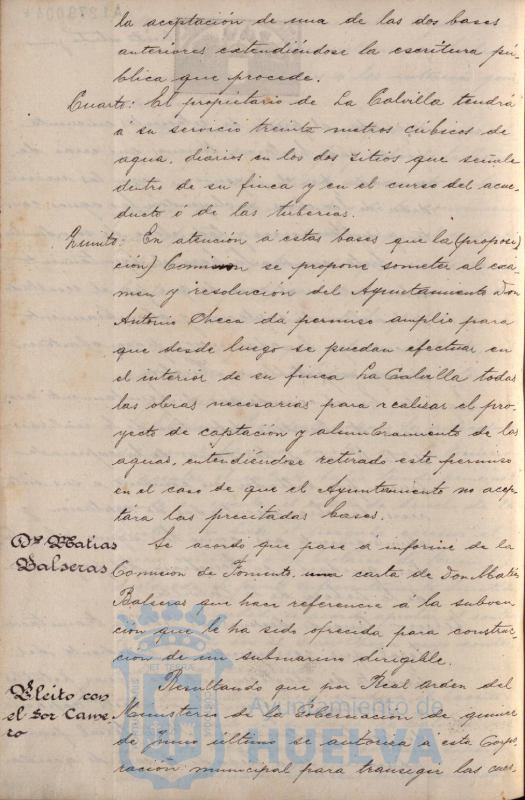 la aceptación de una de las dos bases
anteriores extendiéndose la escritura pú-
blica que procede.
Cuarto: El propietario de La Calvilla tendrá
á su servicio treinta metros cúbicos de
agua, diarios en los dos sitios que señale
dentro de su finca y en el curso del acue-
ducto ó de las tuberías.
Quinto: En atención á estas bases que la (proposi
ción) Comision se propone someter al exá-
men y resolución del Ayuntamiento Don
Antonio Checa dá permiso amplio para
que desde luego se puedan efectuar en
el interior de su finca La Calvilla todas
las obras necesarias para realizar el pro-
yecto de captación y alumbramiento de las
aguas, entendiéndose retirado este permiso
en el caso de que el Ayuntamiento no acep-
tara las precitadas bases.
Dn Matias
Balseras
Se acordo que pase á informe de la
Comision de Fomento, una carta de Don Matias
Balseras que hace referencia á la subven-
cion que le ha sido ofrecida para construc-
cion de un submarino dirigible.
Pleito con
el Sor Came-
ro
Resultando que por Real orden del
Ministerio de la Gobernacion de quince
de Junio último se autoriza á esta Corpo-
ración municipal para transigir las cues-
Ayuntamiento de
HUELVA